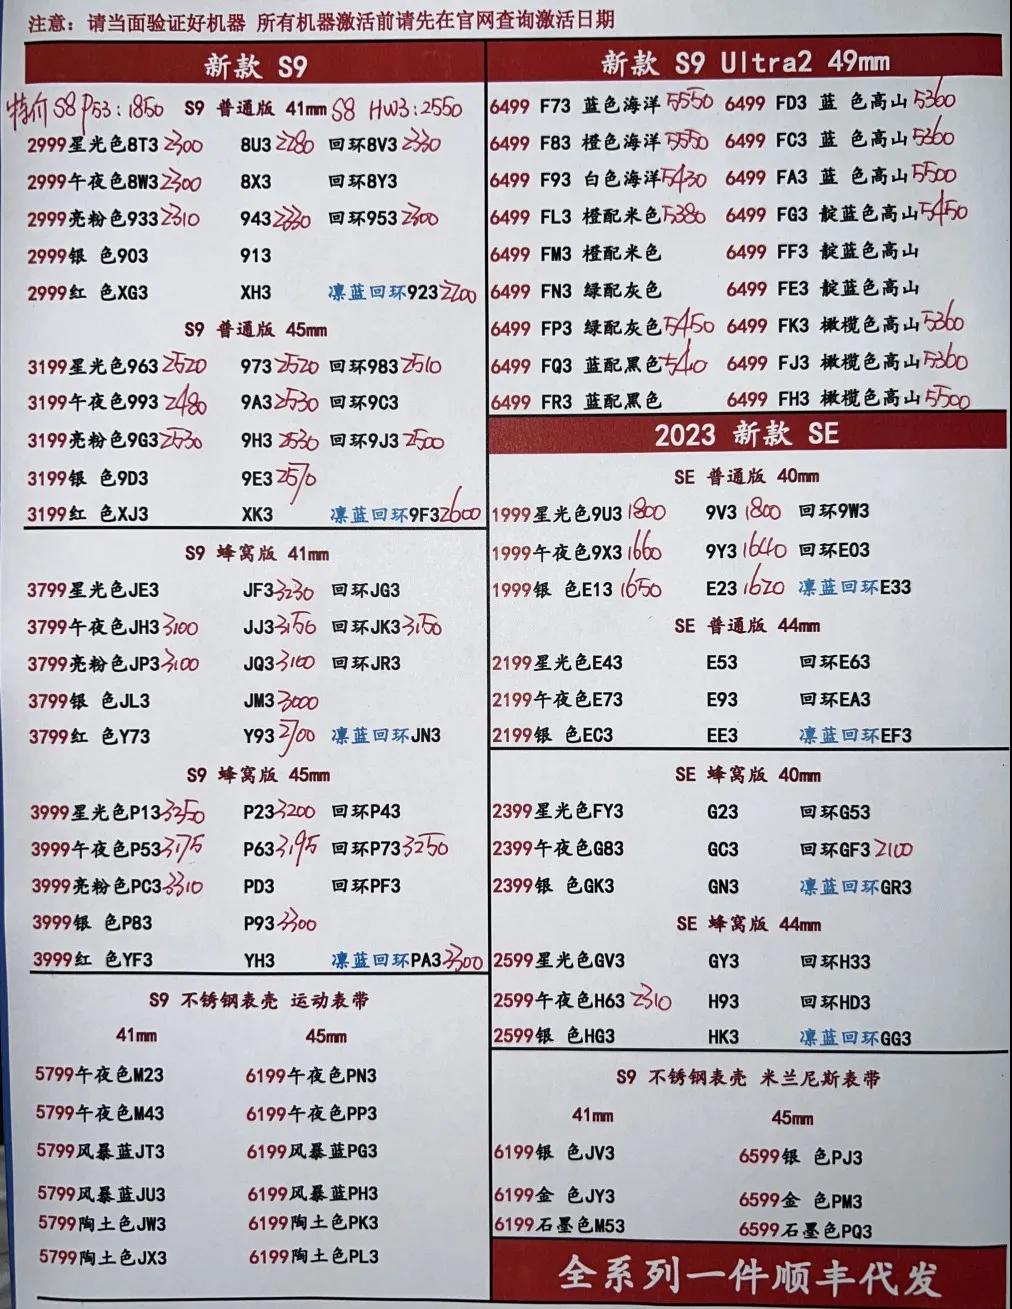 注意: 请当面验证好机器 所有机器激活前请先在官网查询激活日期
新款 S9
特价 S8 P53:1850 S9 普通版 41mm S8 HW3:2550
2999星光色8T3 2300 8U3 2280 回环8V3 2330
2999午夜色8W3 2300 8X3 回环8Y3
2999亮粉色933 2310 943 2330 回环953 2300
2999银 色903 913
2999红 色XG3 XH3 凛蓝回环923 2200
S9 普通版 45mm
3199星光色963 2520 973 2520 回环983 2510
3199午夜色993 2480 9A3 2530 回环9C3
3199亮粉色9G3 2530 9H3 2530 回环9J3 2500
3199银 色9D3 9E3 2570
3199红 色XJ3 XK3 凛蓝回环9F3 2600
S9 蜂窝版 41mm
3799星光色JE3 JF3 3230 回环JG3
3799午夜色JH3 3100 JJ3 3150 回环JK3 3150
3799亮粉色JP3 3100 JQ3 3100 回环JR3
3799银 色JL3 JM3 3000
3799红 色Y73 Y93 2700 凛蓝回环JN3
S9 蜂窝版 45mm
3999星光色P13 3250 P23 3200 回环P43
3999午夜色P53 3175 P63 3195 回环P73 3250
3999亮粉色PC3 3310 PD3 回环PF3
3999银 色P83 P93 3300
3999红 色YF3 YH3 凛蓝回环PA3 3300
S9 不锈钢表壳 运动表带
41mm 45mm
5799午夜色M23 6199午夜色PN3
5799午夜色M43 6199午夜色PP3
5799风暴蓝JT3 6199风暴蓝PG3
5799风暴蓝JU3 6199风暴蓝PH3
5799陶土色JW3 6199陶土色PK3
5799陶土色JX3 6199陶土色PL3
新款 S9 Ultra2 49mm
6499 F73 蓝色海洋 5550 6499 FD3 蓝 色高山 5360
6499 F83 橙色海洋 5550 6499 FC3 蓝 色高山 5360
6499 F93 白色海洋 5430 6499 FA3 蓝 色高山 5500
6499 FL3 橙配米色 5380 6499 FG3 靛蓝色高山 5450
6499 FM3 橙配米色 6499 FF3 靛蓝色高山
6499 FN3 绿配灰色 6499 FE3 靛蓝色高山
6499 FP3 绿配灰色 5450 6499 FK3 橄榄色高山 5360
6499 FQ3 蓝配黑色 5410 6499 FJ3 橄榄色高山 5360
6499 FR3 蓝配黑色 6499 FH3 橄榄色高山 5500
2023 新款 SE
SE 普通版 40mm
1999星光色9U3 1800 9V3 1800 回环9W3
1999午夜色9X3 1660 9Y3 1640 回环E03
1999银 色E13 1650 E23 1620 凛蓝回环E33
SE 普通版 44mm
2199星光色E43 E53 回环E63
2199午夜色E73 E93 回环EA3
2199银 色EC3 EE3 凛蓝回环EF3
SE 蜂窝版 40mm
2399星光色FY3 G23 回环G53
2399午夜色G83 GC3 回环GF3 2100
2399银 色GK3 GN3 凛蓝回环GR3
SE 蜂窝版 44mm
2599星光色GV3 GY3 回环H33
2599午夜色H63 2310 H93 回环HD3
2599银 色HG3 HK3 凛蓝回环GG3
S9 不锈钢表壳 米兰尼斯表带
41mm 45mm
6199银 色JV3 6599银 色PJ3
6199金 色JY3 6599金 色PM3
6199石墨色M53 6599石墨色PQ3
全系列一件顺丰代发